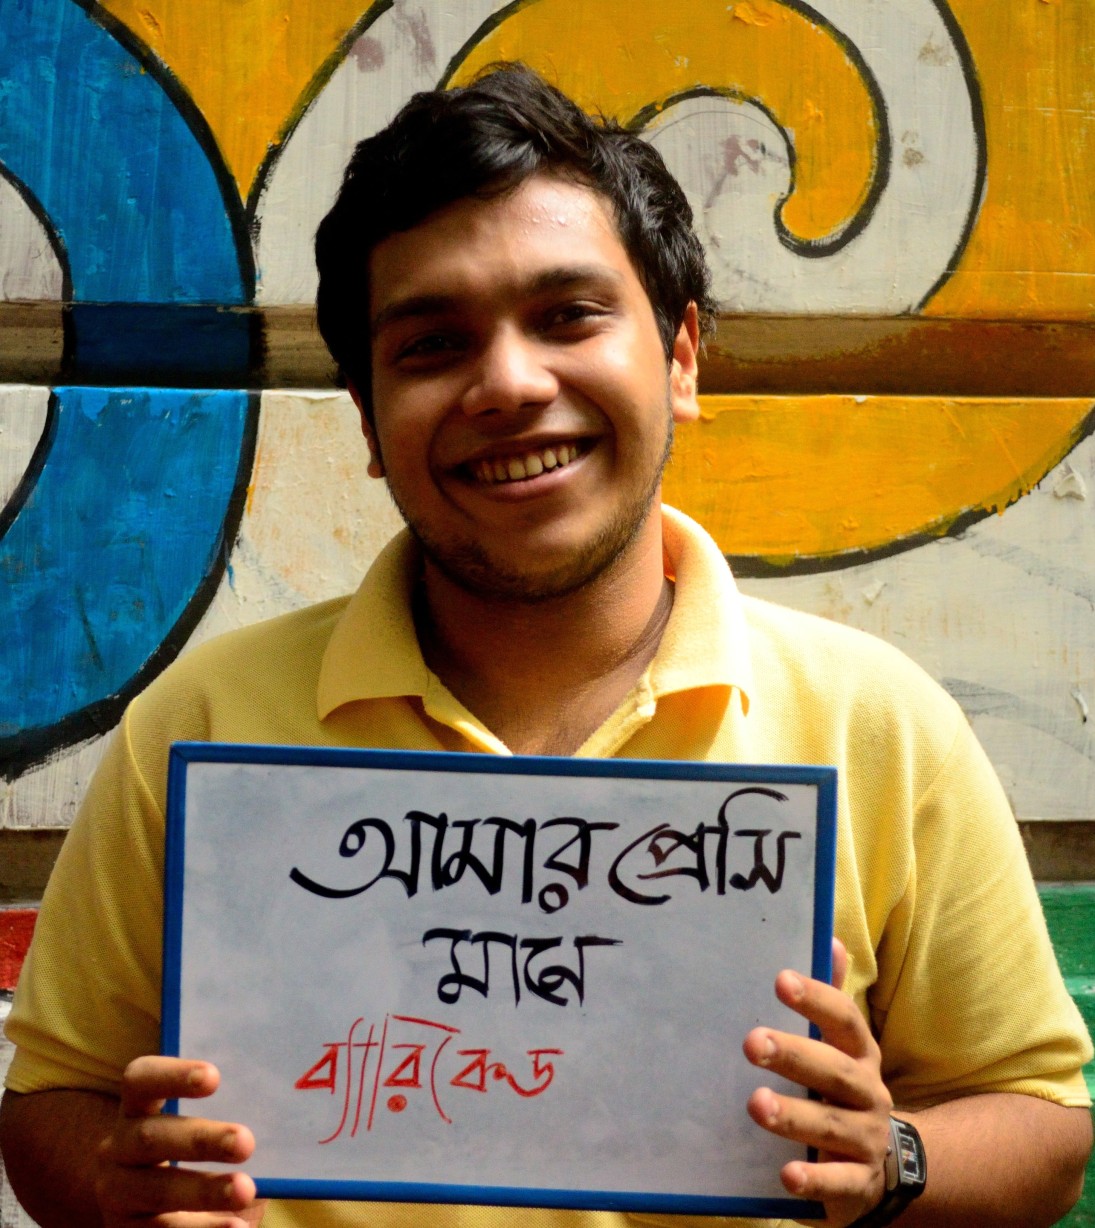 আমার প্রেসি
মানে
ব্যারিকেড